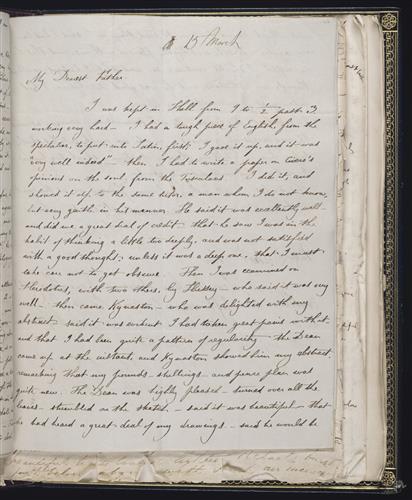 15 March
My Dearest Father
I was kept in Hall from 9 to ½ past 3
working very hard - I had a tough piece of English, from the
spectator, to put into Latin, first. I gave it up, and it was
"very well indeed" - then I had to write a paper on Cicero's
opinions on the soul from the Tusculans I did it, and
showed it up to the same, a man whom I do not know,
but very gentle in his manner. He said it was excellently well
and did me a great deal of credit - that he saw I was in the
habit of thinking a little too deeply, and was not satisfied
with a good thought, unless it was a deep one, that I must
take care not to get obscure. Then I was examined on
Herodotus, with two others, by - who said it was very
well - then came Kynaston - who was delighted with my
abstract - said it was evident I had taken great pains with it -
and that I had been quite a pattern of regularity - the Dean
came up at the instant, and Kynaston showed him my abstract,
remarking that my pounds - shillings - and pence plan was
quite new. The Dean was highly pleased - turned over all the
leaves - stumbled on the sketch, - said it was beautiful - that
he had heard a great deal of my drawings - said he would be